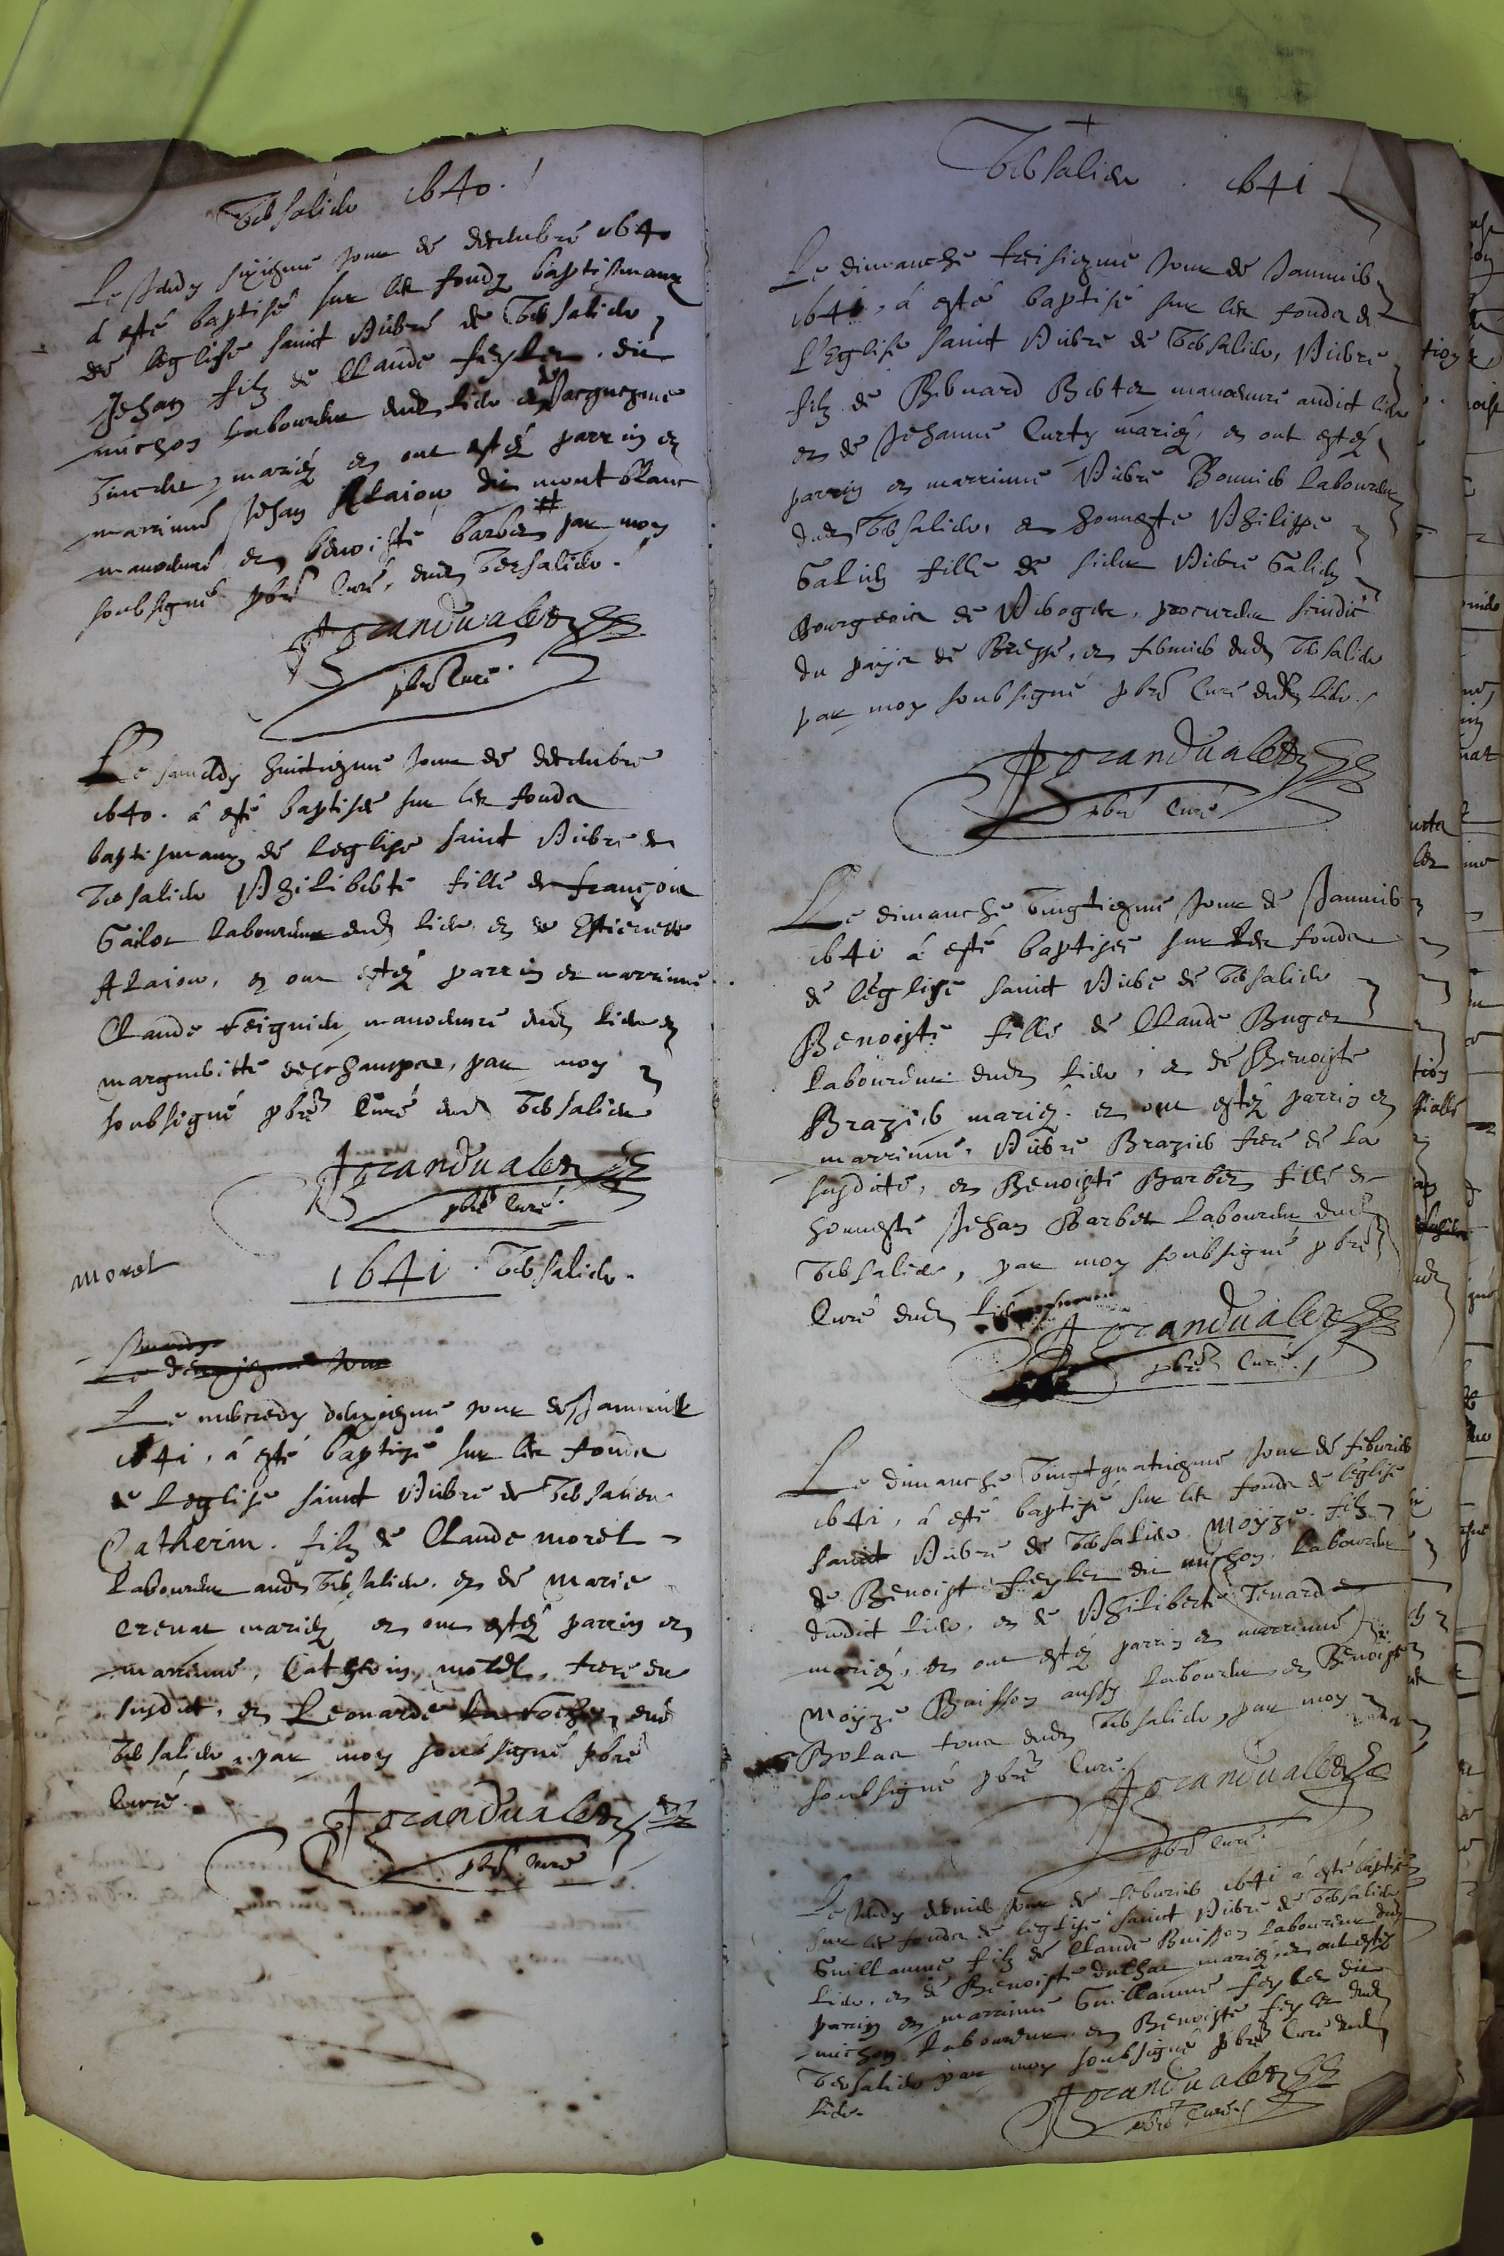 Versalieu 1640.
Le Jeudy sixiesme jour de decembre 1640
a esté baptisé sur les fondz baptismaux
de leglise sainct Pierre de Versalieu
Jehan filz de Claude feyler. dit
michon Laboureur dud. lieu et de Jacquesme
mariéz et ont estéz parrin et
marrinne Jehan Alaion du mont blanc
manoeuvre et benoiste barbet par moy
soubsigné pbre Curé, dud. Versalieu.
Grandvalet
pbre Curé.
Le samedy huictiesme jour de decembre
1640. a esté baptisée sur les fondz
baptismaux de leglise sainct Pierre de
Versalieu Philiberte fille de françois
Gailot Laboureur dud. lieu, et de Estienette
Alaion, et ont estéz parrin et marrinne
Claude feignieu manoeuvre dud. lieu et
margueritte deschampes, par moy
soubsigné pbre Curé dud. Versalieu
Grandvalet
pbre Curé.
morel
1641. Versalieu.
Le mercredy deuxiesme jour de Januier
1641, a esté baptizé sur les fondz
de leglise sainct Pierre de Versalieu
Catherin. filz de Claude morel
Laboureur aud. Versalieu. et de marie
crenat mariéz et ont estéz parrin et
marrinne, Catherin morel, frere du
susdict, et Leonarde dud.
Versalieu, par moy soubsigné pbre
Curé.
Grandvalet
pbre Curé
Versalieu. 1641
Le dimanche treisiesme jour de Januier
1641, a esté baptisé sur les fondz de
l'Eglise sainct Pierre de Versalieu, Pierre
filz de Bernard Bertet manoeuvre audict lieu
et de Jehanne Curty mariéz, et ont estéz
parrin et marrinne Pierre Bonnier Laboureur
dud. Versalieu, et honneste Philippe
Galien fille de sieur Pierre Galien
Bourgeois de Peroges, procureur scindic
du païs de Bresse, et fermier dud. Versalieu
par moy soubsigné pbre Curé dud. lieu.
Grandvalet
pbre Curé
Le dimanche vingtiesme jour de Januier
1641 a esté baptisée sur les fondz
de l'eglise sainct Pierre de Versalieu
Benoiste fille de Claude Buget
Laboureur dud. lieu, et de Benoiste
Brazier mariéz. et ont estéz parrin et
marrinne, Pierre Brazier frere de la
susdicte, et Benoiste Barbet fille de
honneste Jehan Barbet Laboureur dud.
Versalieu, par moy soubsigné pbre
Curé dud. lieu
Grandvalet
pbre Curé.
Le dimanche vingtquatriesme jour de feburier
1641, a esté baptisé sur les fondz de l'eglise
sainct Pierre de Versalieu Moÿze filz
de Benoist feyler dit michon Laboureur
dudict lieu, et de Philiberte Tenard
mariéz, et ont estéz parrin et marrinne,
Moÿze Buisson aussy Laboureur et Benoiste
tous dud. Versalieu, par moy
soubsigné pbre Curé.
Grandvalet
pbre Curé.
Le Jeudy dernier jour de feburier 1641 a esté baptisé
sur les fondz de leglise sainct Pierre de Versalieu
Guillaume filz de Claude Buisson Laboureur dud.
lieu, et de Benoiste mariéz, et ont estéz
parrin et marrinne Guillaume feyler dit
michon Laboureur, et Benoiste feyler dud.
Versalieu par moy soubsigné pbre Curé dud.
lieu.
Grandvalet
pbre Curé.